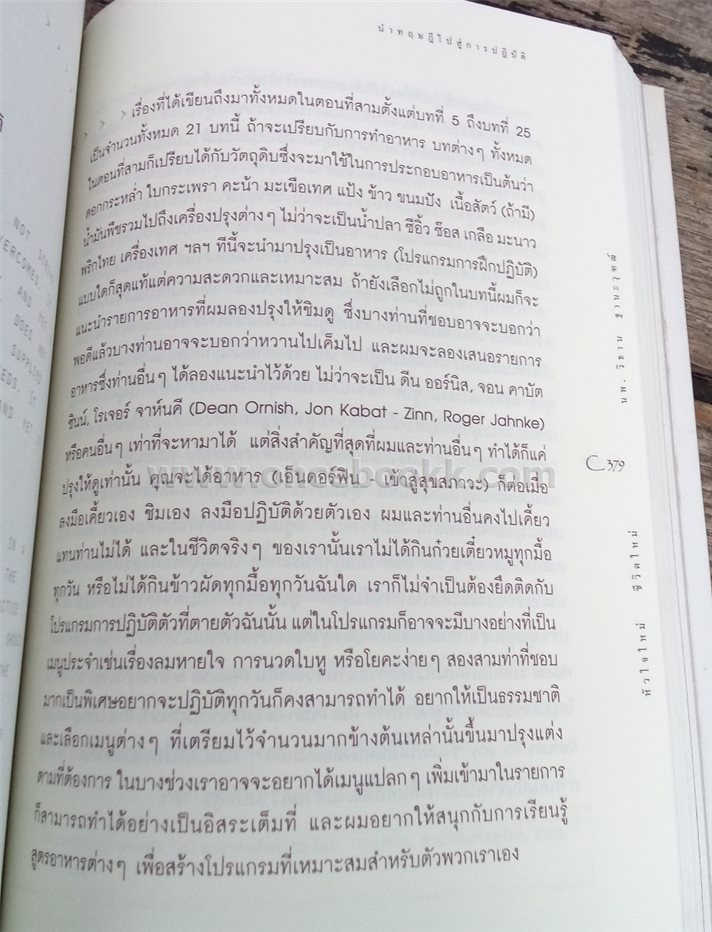 นำทฤษฎีไปสู่การปฏิบัติ
> > > เรื่องที่ได้เขียนถึงมาทั้งหมดในตอนที่สามตั้งแต่บทที่ 5 ถึงบทที่ 25
เป็นจำนวนทั้งหมด 21 บทนี้ ถ้าจะเปรียบกับการทำอาหาร บทต่างๆ ทั้งหมด
ในตอนที่สามก็เปรียบได้กับวัตถุดิบซึ่งจะมาใช้ในการประกอบอาหารเป็นต้นว่า
ดอกกระหล่ำ ใบกระเพรา คะน้า มะเขือเทศ แป้ง ข้าว ขนมปัง เนื้อสัตว์ (ถ้ามี)
น้ำมันพืชรวมไปถึงเครื่องปรุงต่างๆ ไม่ว่าจะเป็นน้ำปลา ซีอิ้ว ซ๊อส เกลือ มะนาว
พริกไทย เครื่องเทศ ฯลฯ ทีนี้จะนำมาปรุงเป็นอาหาร (โปรแกรมการฝึกปฏิบัติ)
แบบใดก็สุดแท้แต่ความสะดวกและเหมาะสม ถ้ายังเลือกไม่ถูกในบทนี้ผมก็จะ
แนะนำรายการอาหารที่ผมลองปรุงให้ชิมดู ซึ่งบางท่านที่ชอบอาจจะบอกว่า
พอดีแล้วบางท่านอาจจะบอกว่าหวานไปเค็มไป และผมจะลองเสนอรายการ
อาหารซึ่งท่านอื่นๆ ได้ลองแนะนำไว้ด้วย ไม่ว่าจะเป็น ดีน ออร์นิส, จอน คาบัต
ซินน์, โรเจอร์ จาห์นคี (Dean Ornish, Jon Kabat - Zinn, Roger Jahnke)
หรือคนอื่นๆ เท่าที่จะหามาได้ แต่สิ่งสำคัญที่สุดที่ผมและท่านอื่นๆ ทำได้ก็แค่
ปรุงให้ดูเท่านั้น คุณจะได้อาหาร (เอ็นดอร์ฟิน - เข้าสู่สุขสภาวะ) ก็ต่อเมื่อ
ลงมือเคี้ยวเอง ชิมเอง ลงมือปฏิบัติด้วยตัวเอง ผมและท่านอื่นคงไปเคี้ยว
แทนท่านไม่ได้ และในชีวิตจริงๆ ของเรานั้นเราไม่ได้กินก๋วยเตี๋ยวหมูทุกมื้อ
ทุกวัน หรือไม่ได้กินข้าวผัดทุกมื้อทุกวันฉันใด เราก็ไม่จำเป็นต้องยึดติดกับ
โปรแกรมการปฏิบัติตัวที่ตายตัวฉันนั้น แต่ในโปรแกรมก็อาจจะมีบางอย่างที่เป็น
เมนูประจำเช่นเรื่องลมหายใจ การนวดใบหู หรือโยคะง่ายๆ สองสามท่าที่ชอบ
มากเป็นพิเศษอยากจะปฏิบัติทุกวันก็คงสามารถทำได้ อยากให้เป็นธรรมชาติ
และเลือกเมนูต่างๆ ที่เตรียมไว้จำนวนมากข้างต้นเหล่านั้นขึ้นมาปรุงแต่ง
ตามที่ต้องการ ในบางช่วงเราอาจจะอยากได้เมนูแปลกๆ เพิ่มเข้ามาในรายการ
ก็สามารถทำได้อย่างเป็นอิสระเต็มที่ และผมอยากให้สนุกกับการเรียนรู้
สูตรอาหารต่างๆ เพื่อสร้างโปรแกรมที่เหมาะสมสำหรับตัวพวกเราเอง
นพ. วิธาน ฐานะวุฑฒ์
379
หัวใจใหม่ ชีวิตใหม่
NOT
DOES
SUPPLIED
AND YET
ON A
THE
THE